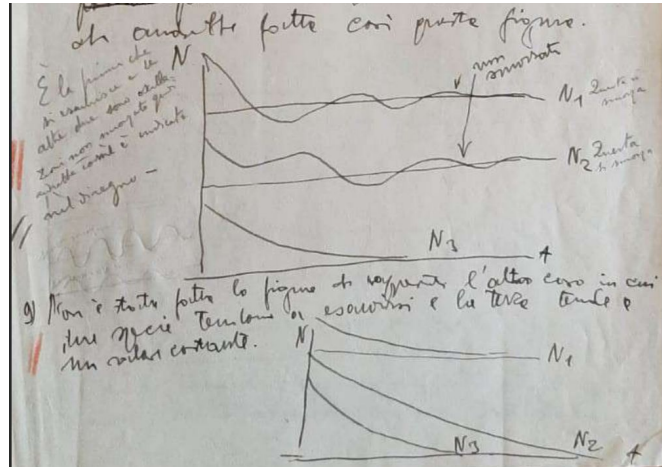 andrebbe fatta così questa figura.
È la prima che
si esaurisce e le
altre due sono oscilla-
zioni non smorzate
com'è indicato
nel disegno –
N
non
smorzata
N1 Questa si
smorza
N2 Questa
si smorza
N3
t
9) Non è stata fatta la figura di rapporto l'altro caso in cui
due specie tendono a esaurirsi e la terza tende a
un valore costante.
N
N1
N3
N2
t